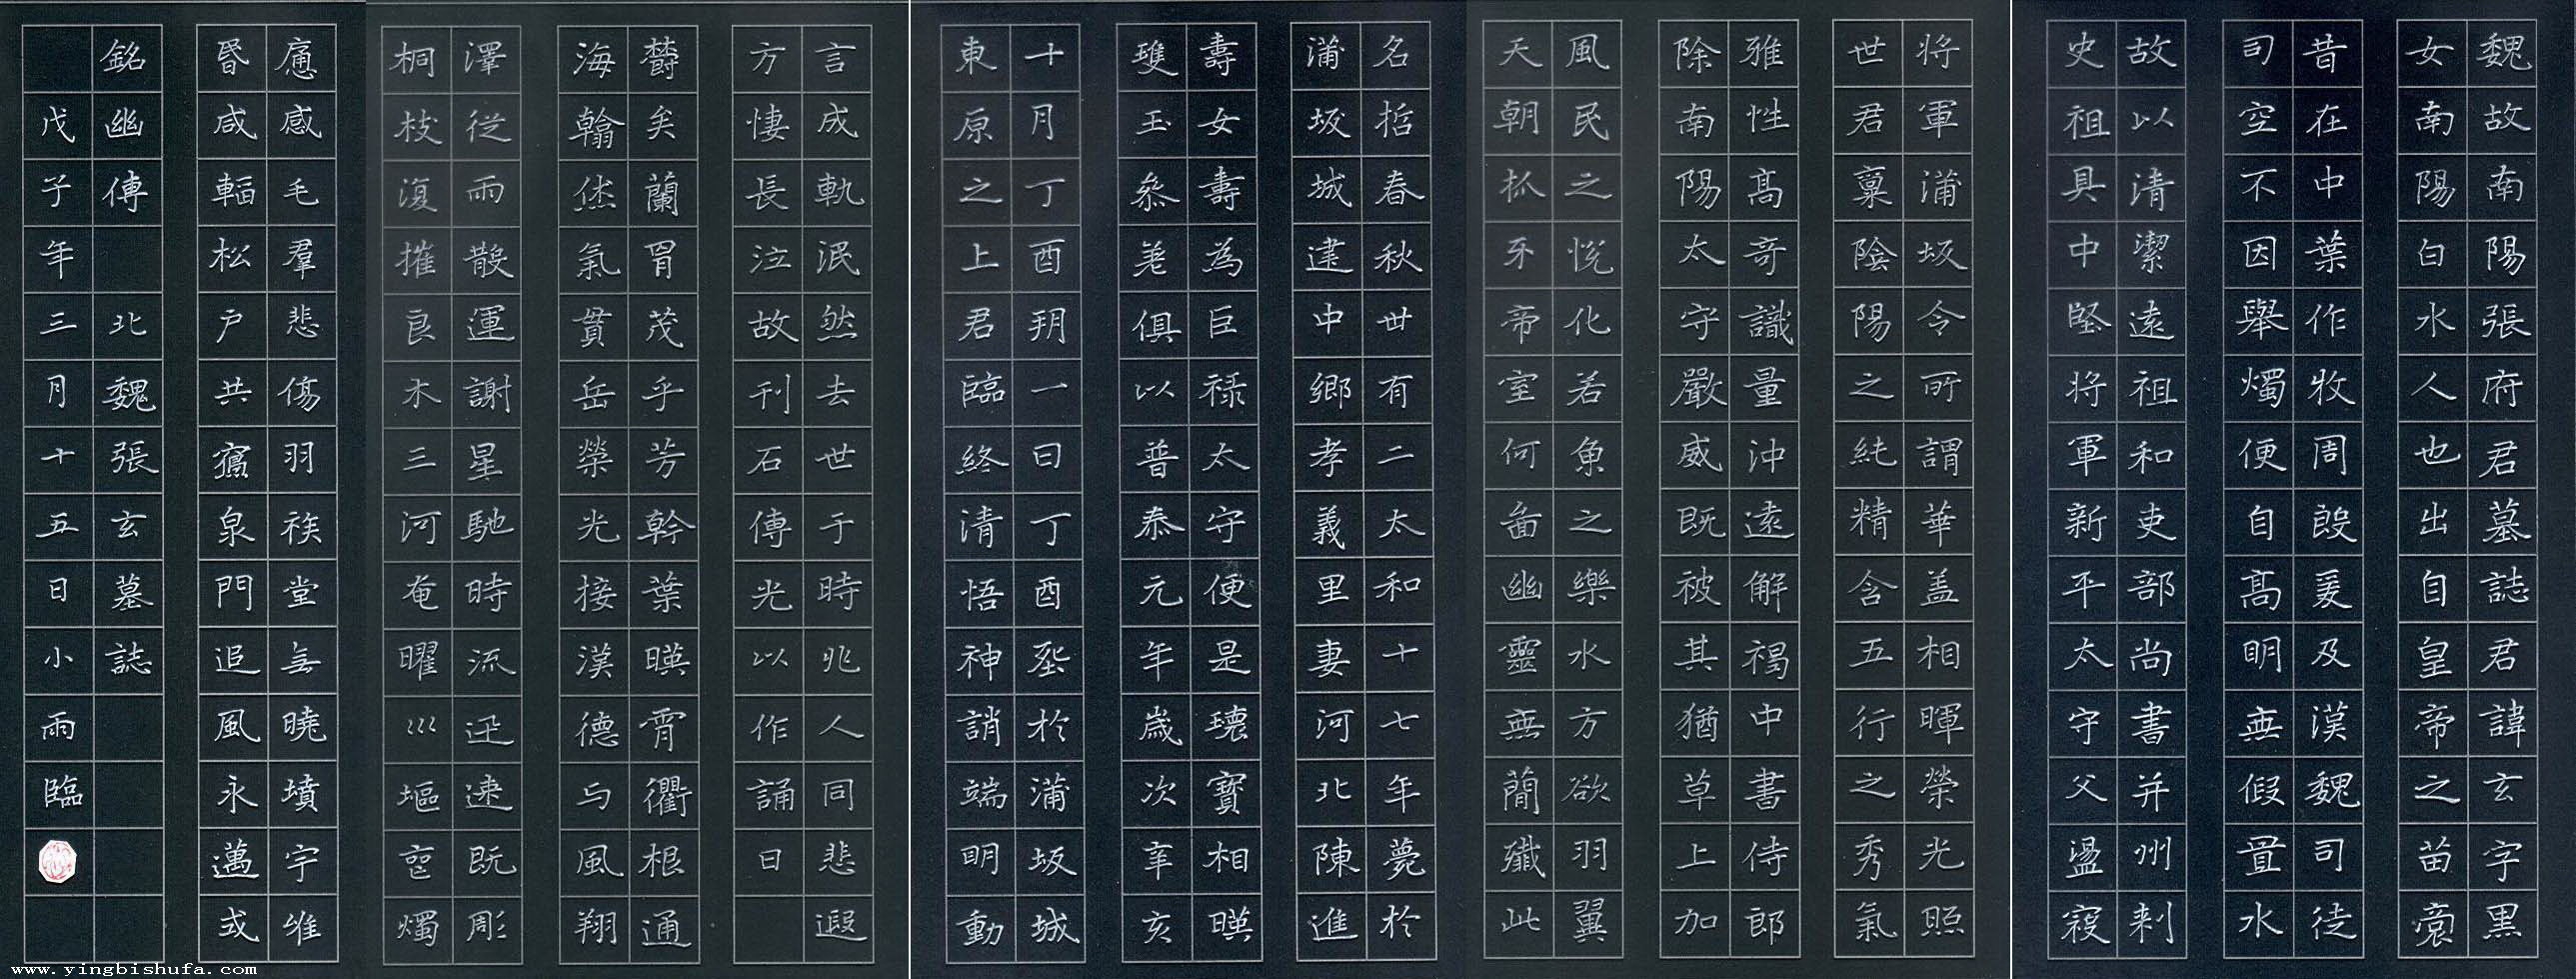 魏故南陽張府君墓誌君諱玄字黑
女南陽白水人也出自皇帝之苗裔
昔在中葉作牧周殷爰及漢魏司徒
司空不因舉燭便自高明無假置水
故以清潔遠祖和吏部尚書并州刺
史祖具中堅將軍新平太守父盪寇
將軍蒲坂令所謂華盖相暉榮光照
世君稟陰陽之純精含五行之秀氣
雅性高奇識量沖遠解褐中書侍郎
除南陽太守嚴威既被其猶草上加
風民之悅化若魚之樂水方欲羽翼
天朝抓牙帝室何啚幽靈無簡殲此
名哲春秋卅有二太和十七年薨於
蒲坂城建中鄉孝義里妻河北陳進
壽女壽為巨祿太守便是瓌寶相暎
雙玉參差俱以普泰元年歲次辛亥
十月丁酉朔一日丁酉葬於蒲坂城
東原之上君臨終清悟神誚端明動
言成軌泯然去世于時兆人同悲遐
方悽長泣故刊石傳光以作誦曰
欝矣蘭冑茂乎芳幹葉暎霄衢根通
海翰烋氣貫岳榮光接漢德与風翔
澤從雨散運謝星馳時流迅速既彫
桐枝復摧良木三河奄曜巛塸燭
感毛羣悲傷羽族堂無曉墳宇唯
昏咸輟松戶共寢泉門追風永邁式
銘幽傳 北魏張玄墓誌
戊子年三月十五日小雨臨
www.yingbishufa.com